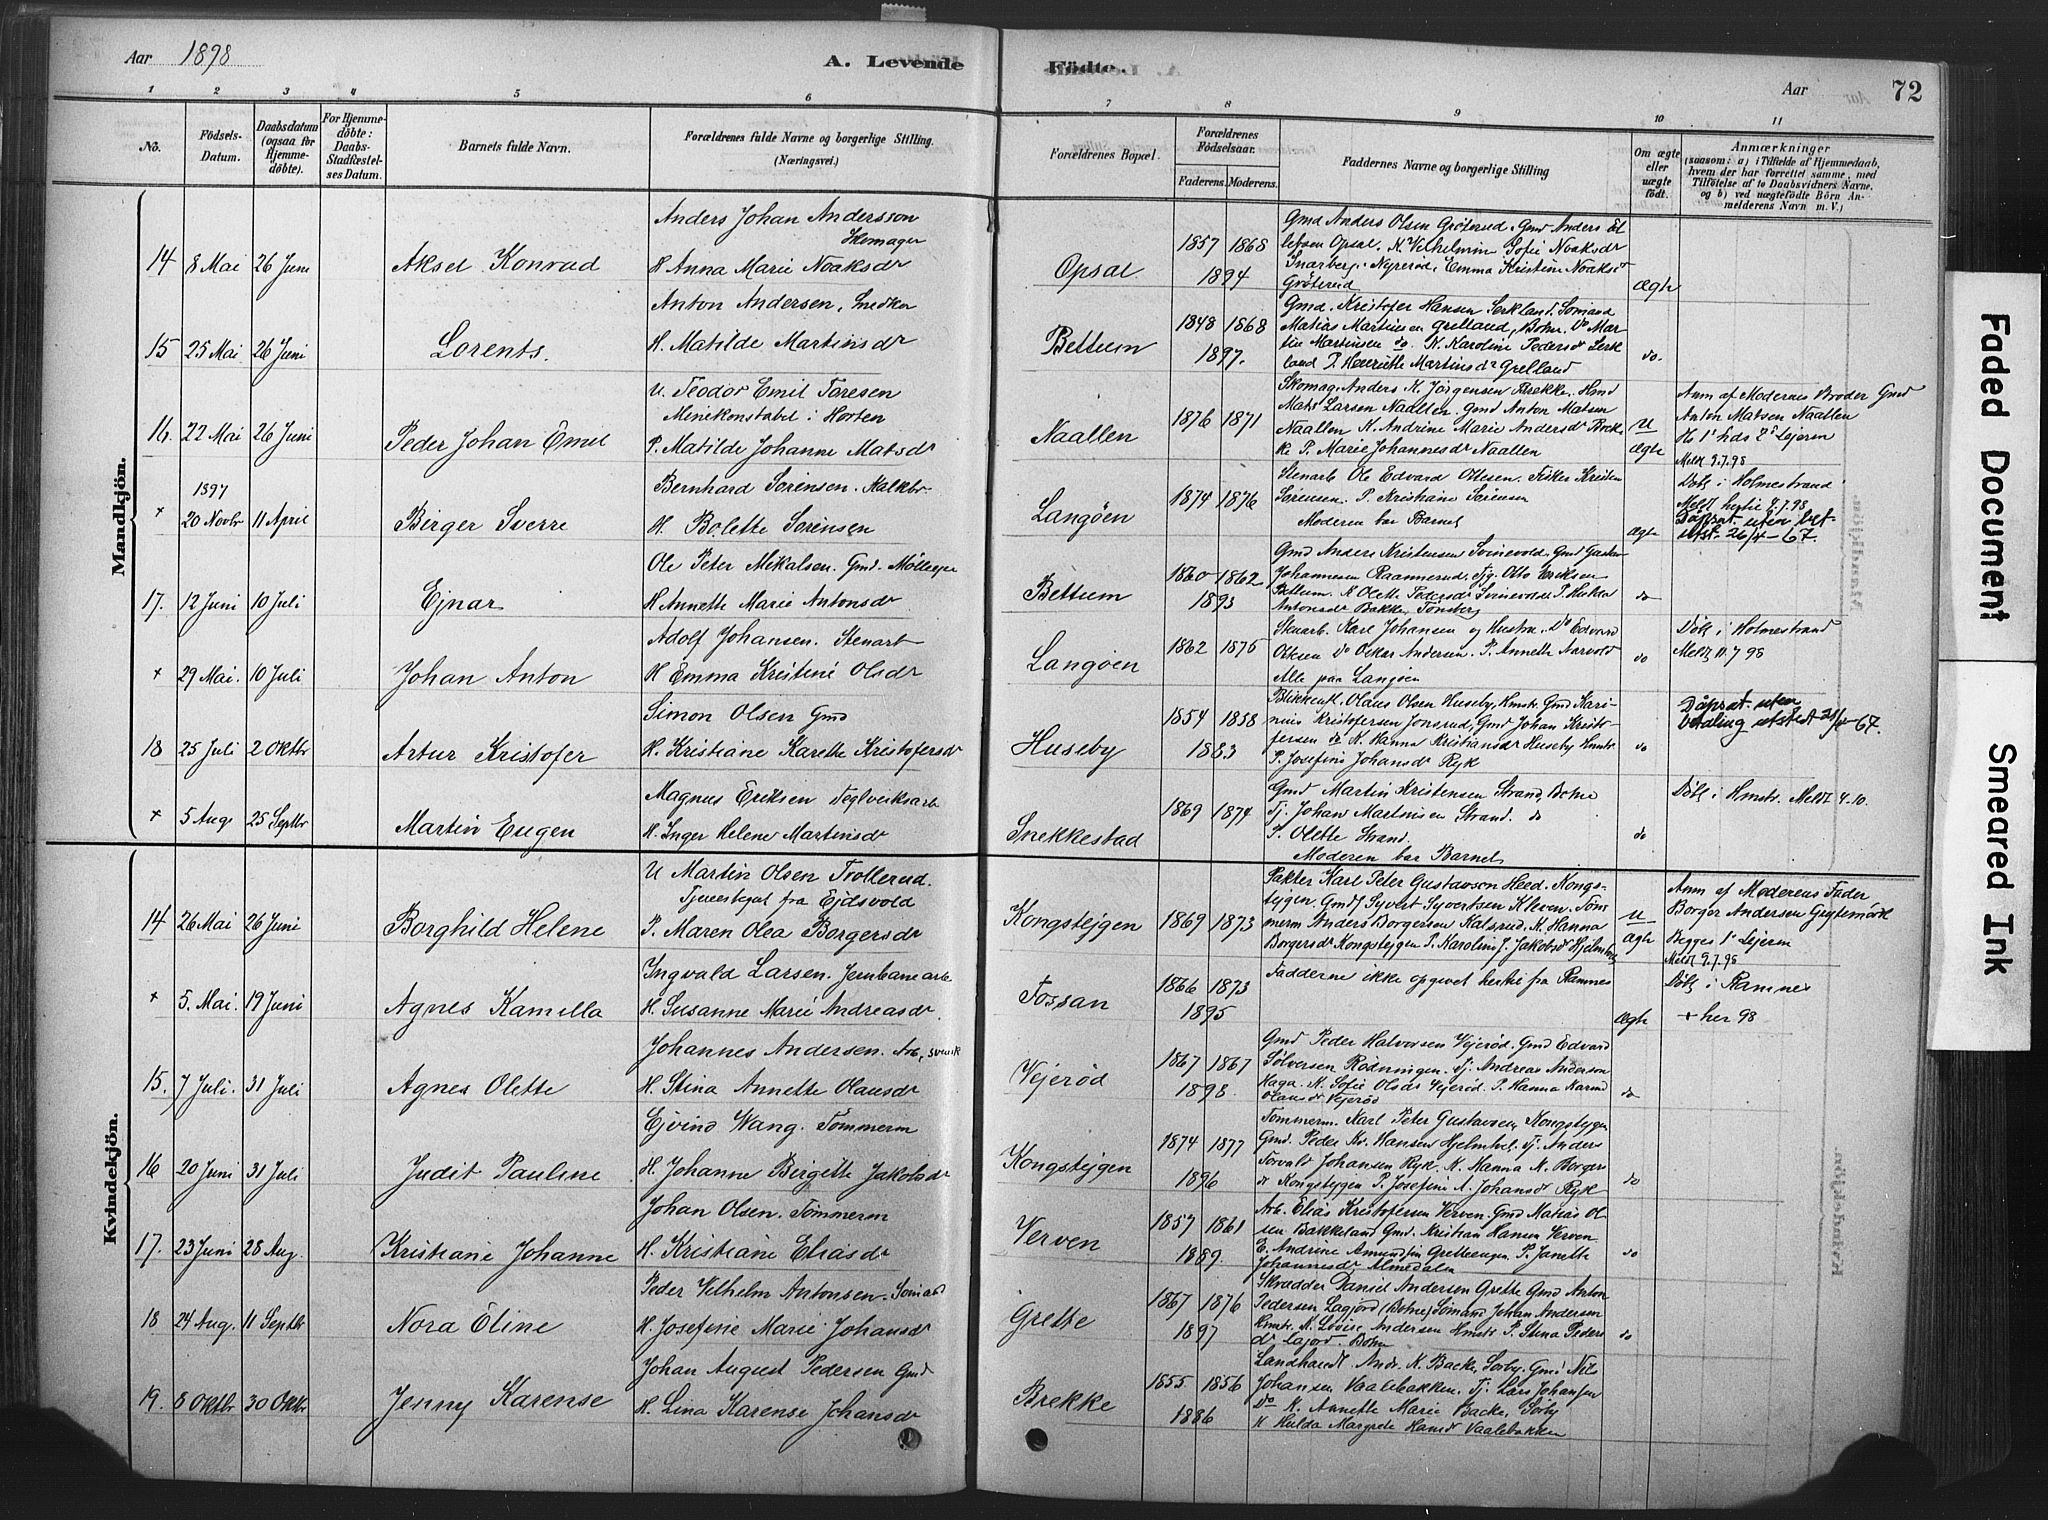 Aar 1898
A. Levende
Födte.
Aar
72
1 2 3 4 5 6 7 8 9 10 11
No.
Födsels-
Datum.
Daabsdatum
(ogsaa for
Hjemme-
döbte).
For Hjemme-
döbte:
Daabs-
Stadfæstel-
ses Datum.
Barnets fulde Navn.
Forældrenes fulde Navne og borgerlige Stilling.
(Næringsvei.)
Forældrenes Bopæl.
Forældrenes
Födselsaar.
Faderens. Moderens.
Faddernes Navne og borgerlige Stilling
Om ægte
eller
uægte
födt.
Anmærkninger
(saasom: a) i Tilfælde af Hjemmedaab,
hvem der har forrettet samme, med
Tilföielse af to Daabsvidners Navne,
og b) ved uægtefödte Börn An-
melderens Navn m. V.)
Mandkjön.
14 8 Mai 26 Juni Aksel Konrad
Anders Johan Andersson
Skomager
H Anna Marie Noaksdr
Opsal
1857 1868
1894
Gmd Anders Olsen Gröterud. Gmd Anders El
lefsen Opsal. K Vilhelmin Sofie Noaksdr
Snarberg, Nyrerød, Emma Kristine Noaksdr
Gröterud
Ægte
15 25 Mai 26 Juni Lorents.
Anton Andersen, Snedker
H. Matilde Martinsdr
Bettum
1848 1868
1897.
Gmd. Kristofer Hansen Serkland. Sömand
Matias Martinsen Grelland, Botne. Do Mar-
tin Martinsen do. K. Karoline Pedersdr Serk
land P. Henriette Martinsdr Grelland
do.
16. 22 Mai 26 Juni Peder Johan Emil
U. Teodor Emil Toresen
Minekonstabel i Horten
P. Matilde Johanne Matsdr
Naallen
1876 1871
Skomag. Anders K. Jörgensen Brekke. Gmd
Mats Larsen Naallen. Gmd Anton Matsen
Naallen K. Andrine Marie Andersdr Brek
ke P. Marie Johannesdr Naallen
U
Ægte
Anm af Modernes Broder Gmd
Anton Matsen Naallen
H 1s hds 2s Lejerm
Meldt 9.7.98
+ 1897 20 Novbr 11 April Birger Sverre
Bernhard Sörensen. Kalkbr.
H. Bolette Sörensen
Langöen
1874 1876
Stenarb Ole Edvard Ottesen. Fisker Kristen
Sörensen. P. Kristiane Sörensen
Moderen bar Barnet
Ægte
Döbt i Holmestrand
Meldt hertil 7.7.98
Dåpsat. uten bet-
utst. 26/4-67.
17. 12 Juni 10 Juli Ejnar
Ole Peter Mikalsen. Gmd. Mölleeje
H Annette Marie Antonsdr
Bettum
1860 1862
1893
Gmd Anders Kristensen Svinevold. Gmd Gustav
Johannesen Raannerud. Tjg. Otto Eriksen
Bettum. K Olette Pedersdr Svinevold. P. Hulda
Antonsdr Bakke, Tönsberg
do
+ 29 Mai. 10 Juli Johan Anton
Adolf Johansen. Stenarb
H Emma Kristine Olsdr
Langöen
1862 1875
Stenarb. Karl Johansen og Hustru. Do Edvard
Ottesen Do Oskar Andersen. P. Annette Aarvold
Alle paa Langöen
do
Döbt i Holmestrand
Meldt 11.7 98
18 25 Juli 2 Oktbr Artur Kristofer
Simon Olsen Gmd
H. Kristiane Karette Kristofersdr
Huseby
1854 1858
1883
Blikkensl. Olaus Olsen Huseby, Hmstr. Gmd Kari-
nius Kristofersen Jonsrud, Gmd Johan Kristo-
fersen do K. Hanna Kristiansdr Huseby Hmstr
P. Josefine Johansdr Ryk
do
Dåpsat. uten
betaling utstedt 28/4-67.
+ 5 Aug. 25 Septbr Martin Eugen
Magnus Eriksen Teglverksarb
H. Inger Helene Martinsdr
Snekkestad
1869 1874
Gmd Martin Kristensen Strand, Botne
Tj. Johan Martinsen Strand. do
P. Olette Strand.
Moderen bar Barnet
do
Döbt i Hmstr. Meldt 4.10.
Kvindekjön.
14 26 Mai 26 Juni Borghild Helene
U Martin Olsen Trollerud.
Tjenestegut fra Ejdsvold
P. Maren Olea Borgersdr
Kongstejgen
1869 1873
Pakter Karl Peter Gustavson Heed. Kongs-
tygen. Gmd Syvert Syvertsen Kleven. Töm
merm Anders Borgersen Kalsrud. K. Hanna
Borgersdr Kongstejgen P. Karoline J. Jakobsdr Hjelmtvet
U
Ægte
Anm af Moderens Fader
Borger Andersen Gigtemörk
Begges 1s Lejerm
Meldt 9.7.98
+ 5. Mai. 19 Juni Agnes Kamilla
Ingvald Larsen. Jernbanearb
H. Susanne Marie Andreasdr
Fossan
1866 1873
1895
Fadderne ikke opgivet hertil fra Ramnes
Ægte
Döbt i Ramnes
+ her 98
15. 7 Juli. 31 Juli Agnes Olette
Johannes Andersen. Arb, svensk
H. Stina Annette Olausdr
Vejeröd
1867 1867
1898.
Gmd Peder Halvorsen Vejeröd. Gmd Edvard
Sölvesen Rödningen. Tj. Andreas Anderson
Haga. K. Sofie Olsdr Vejeröd. P. Hanna Karine
Olausdr Vejeröd
do
16 20 Juni 31 Juli Judit Pauline
Ejvind Wang. Tömmerm
H. Johanne Birgitte Jakobsdr
Kongstejgen
1874 1877
1896
Tömmerm. Karl Peter Gustavsen, Kongstygen
Gmd. Peder Kr. Hansen Hjelmtvet. Tj. Anders
Torvald Johansen Ryk. K. Hanna M. Borgers
dr Kongstygen P. Josefine A. Johansdr Ryk
do
17. 23 Juni 28 Aug. Kristiane Johanne
Johan Olsen. Tömmerm
H. Kristiane Eliasdr
Verven
1857 1861
1889.
Arb. Elias Kristofersen Verven. Gmd Matias Ol-
sen Bakkeland Gmd. Kristian Hansen Verven
E. Andrine Amundsen Gretteengen. P. Janette
Johannesdr Almedalen
do
18 24 Aug. 11 Septbr Nora Eline
Peder Vilhelm Antonsen. Sömand
H. Josefine Marie Johansdr
Grette
1867 1876
1897
Skrædder Daniel Andersen Grette Gmd Anton
Pedersen Lagjord (Botne) Sömand Johan Andersen
Hmstr. K. Lovise Andersen Hmstr P. Stina Peders
dr Lajord. Botne
do
19. 8 Oktbr 30 Oktbr Jenny Karense
Johan August Pedersen Gmd
H. Lina Karense Johansdr
Brekke
1855 1856
1886
Landhandl. Andr. K. Backe, Sörby. Gmd Nils
Johansen Vaalebakken. Tj. Lars Johansen
Do K. Annette Marie Backe, Sörby
K Hulda Margrete Hansdr Vaalebakken
Faded Document
Smeared Ink